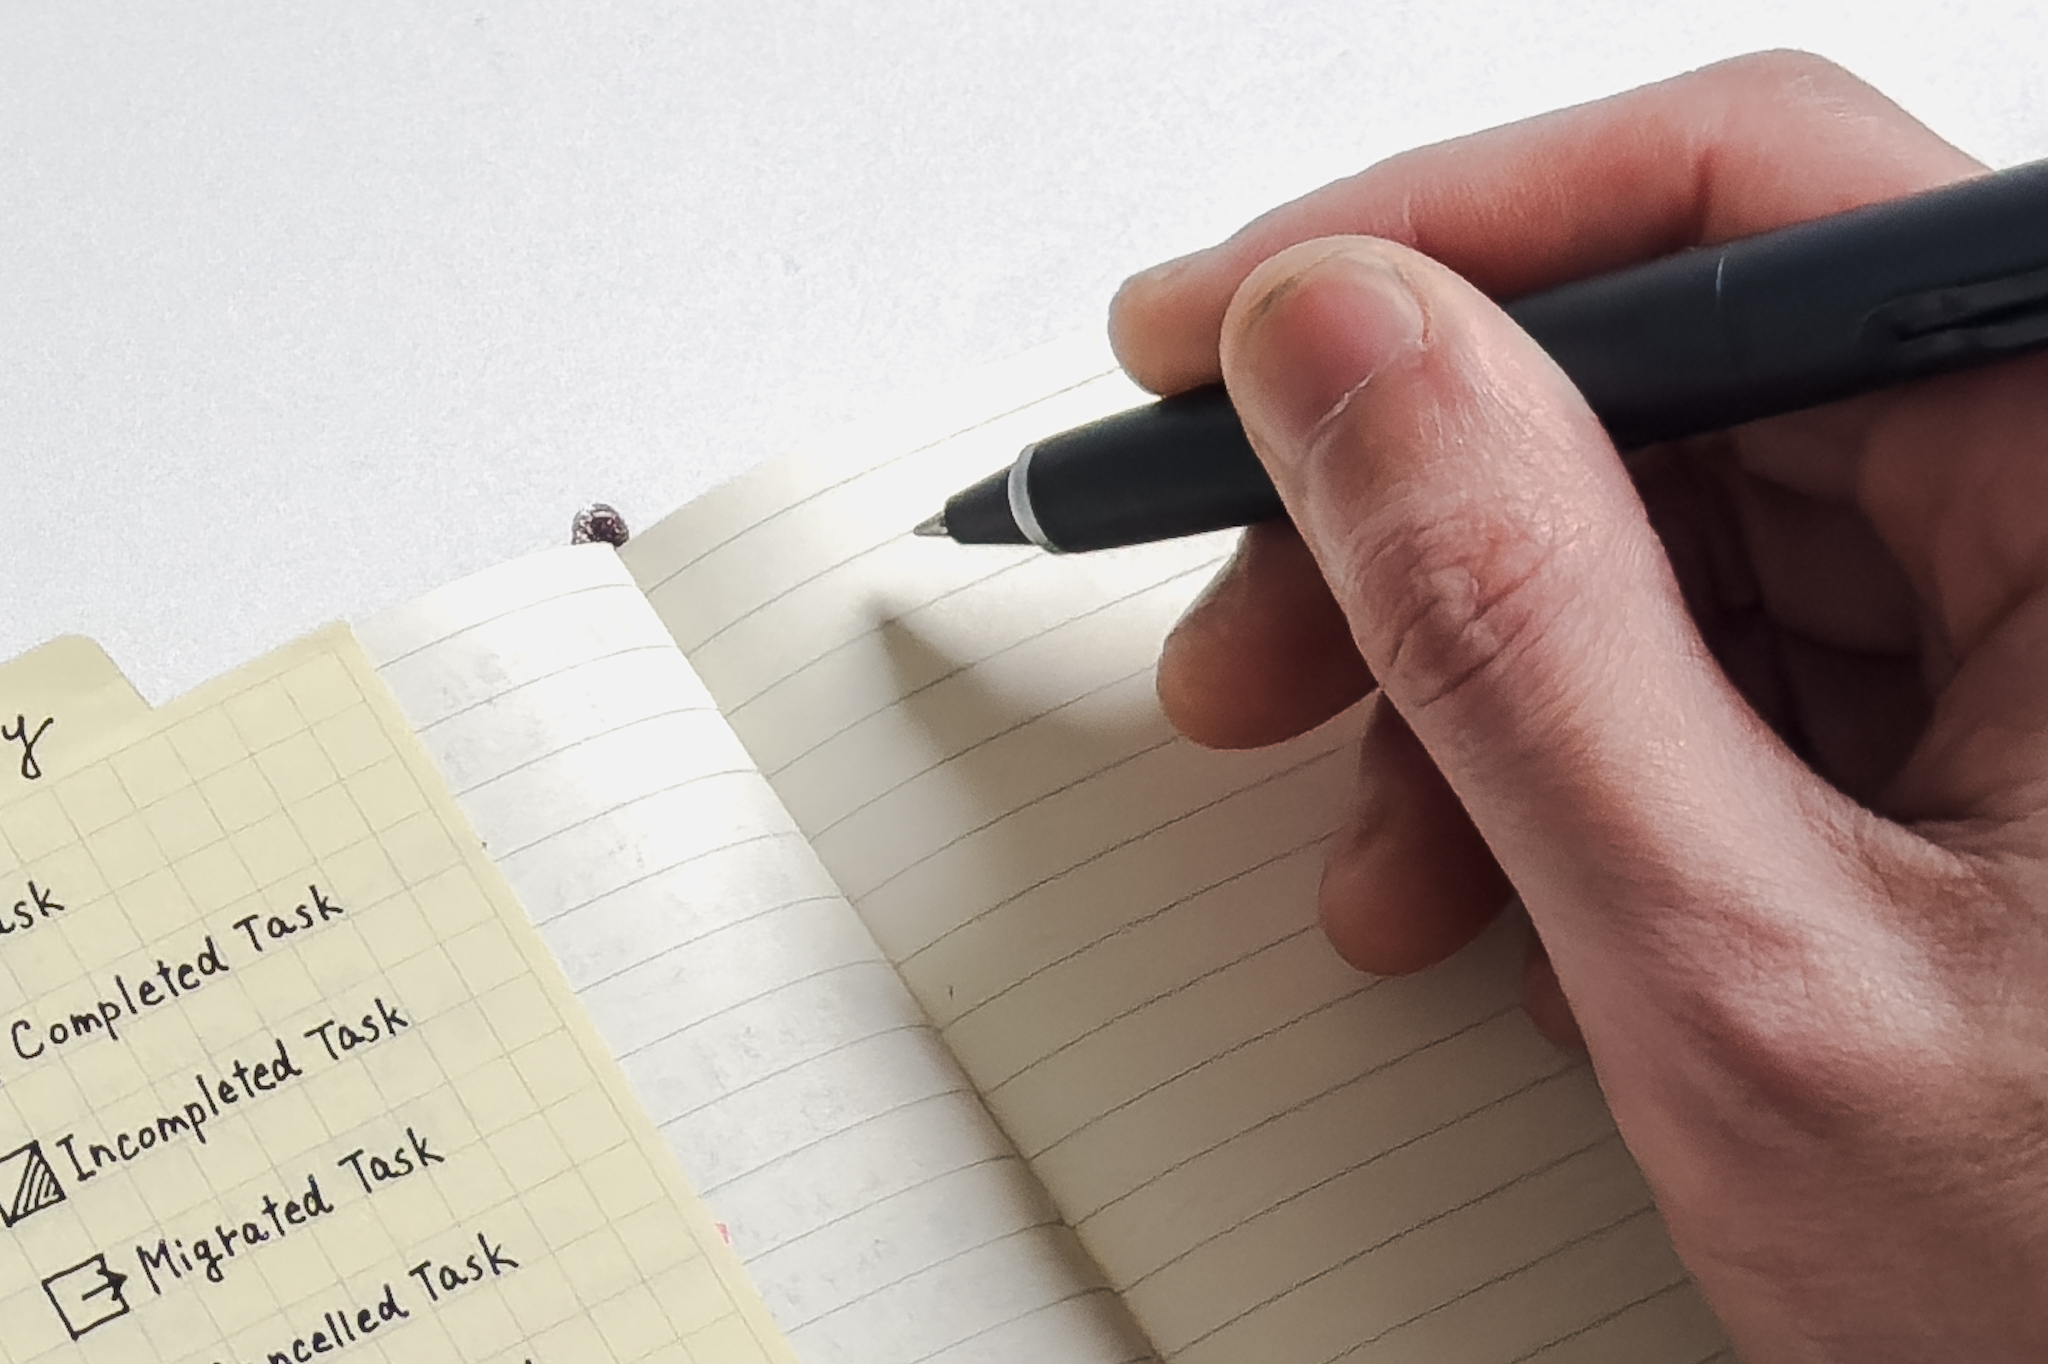 y
ask
Completed Task
Incompleted Task
Migrated Task
ancelled Task